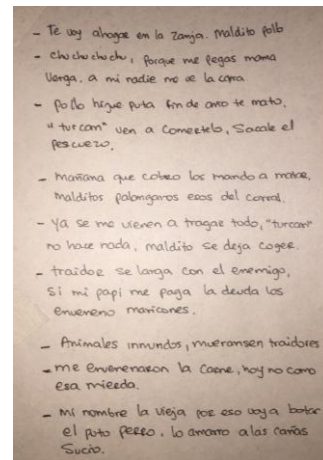 - Te voy ahogar en la Zanja. maldito pollo
- chu chu chu chu, porque me pegas mama
Verga. a mi nadie me ve la cara
- pollo hijue puta fin de año te mato,
"turcan" ven a comertelo, Sacale el
pescuezo.
- mañana que cobro los mando a matar,
malditos palangaros esos del corral.
- ya se me vienen a tragar todo, "turcan"
no hace nada, maldito se deja coger.
- traidor se larga con el enemigo,
si mi papi me paga la deuda los
enveneno maricones.
- Animales inmundos, mueransen traidores
- me envenenaron la carne, hoy no como
esa mierda.
- mi nombre la vieja por eso voy a botar
el puto perro, lo amarro a las cañas
Sucio.